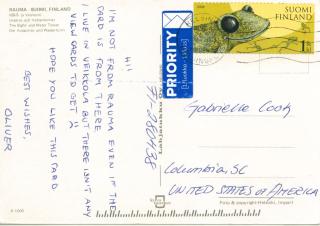 RAUMA - SUOMI, FINLAND
Hi!
I'M NOT FROM RAUMA EVEN IF THE
CARD IS FROM THERE.
I LIVE IN VEIKKOLA BUT THERE ISN'T ANY
VIEW CARDS TO GET :(
HOPE YOU LIKE THIS CARD
BEST WISHES,
OLIVER
PRIORITY
SUOMI
FINLAND
1
FI-2804438
Gabrielle Cook
Columbia, SC
UNITED STATES OF AMERICA